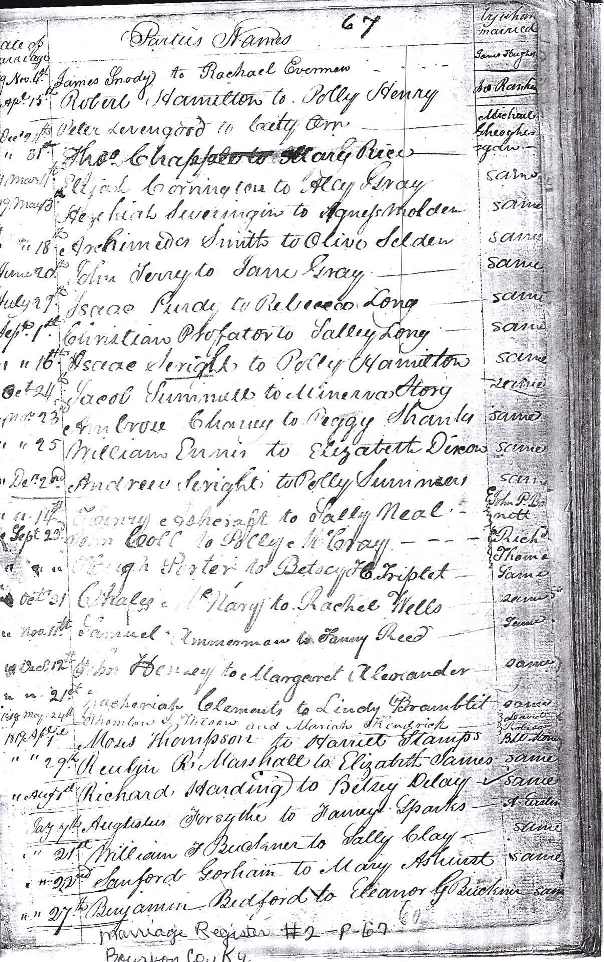 67
Date of marriage Parties Names by whom married
Nov. 6th James Snody to Rachael Evermen James Hughes
Apl. 15th Robert Hamilton to Polly Henry Jno Rankin
Decr Peter Livengood to Caty Orn Michael
" 31st Thos. Chapple to Mary Rice
Mar 11th Elijah Corrington to Alcy Gray same
May 13 Hezekiah to Agness Molden same
" 18 Archimedes Smith to Olive Selden same
June 20th John Terry to Jane Gray same
July 27th Isaac Purdy to Rebecca Long same
Sept. 1st Christian Profator to Salley Long same
" " 16th Isaac Seright to Polly Hamilton same
Oct 24 Jacob Summell to Minerva Story same
Nov. 23 Ambrose Chaney to Peggy Shanks same
" " 25 William Ennis to Elizabeth Dixon same
" Decr 2nd Andrew Seright to Polly Summers same
" " 14 Henry Ashcraft to Sally Neal John P.
Sept 23d Coll to Polly McCray Richd
" " " Hugh Porter to Betsey H. Triplet same
" Octr 31 Charles McNary to Rachel Wells same
" Nov. 11th Samuel Ammerman to Fanny Reed same
" Decr. 12th John Henrey to Margaret Alexander same
" " 21st Zacheriah Clements to Lindy Bramblit same
1818 May 24th Thomton and Mariah Kendrick
1819 Apl Moses Thompson to Harriet Stamps B. W. Stone
" " 29th Reubin R. Marshall to Elizabeth James same
" Augt 1st Richard Harding to Betsey Delay same
Augustus Forsythe to Fanney Sparks
" " 21st William F Buckner to Sally Clay same
" " 22nd Sanford Gorham to Mary Ashurst same
" " 27th Benjamin Bedford to Eleanor G Buckner same
Marriage Register #2-P-67
Bourbon Co., Ky.